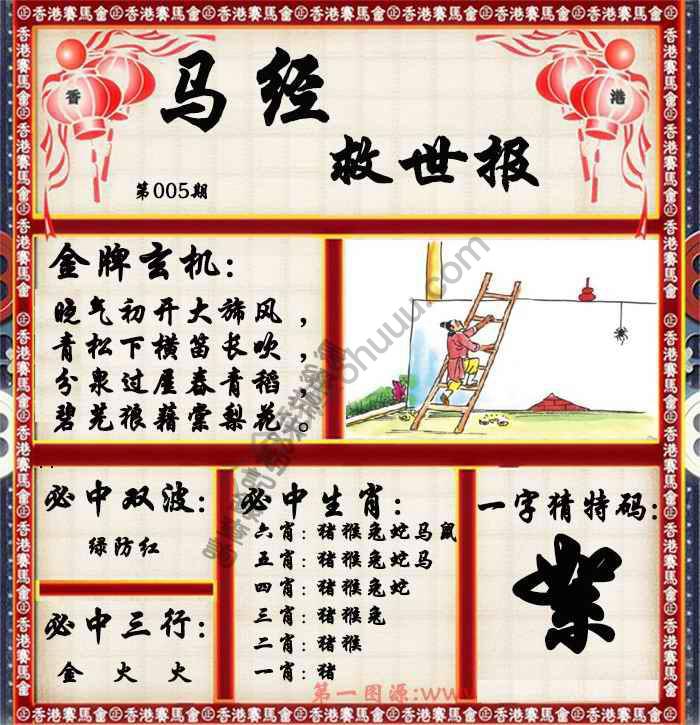 香港賽馬會
香
港
马经
救世报
第005期
金牌玄机:
晓气初开大旆风,
青松下横笛长吹,
分泉过屋春青稻,
碧芜狼藉棠梨花。
必中双波:
绿防红
必中三行:
金 火 火
必中生肖:
六肖:猪猴兔蛇马鼠
五肖:猪猴兔蛇马
四肖:猪猴兔蛇
三肖:猪猴兔
二肖:猪猴
一肖:猪
一字猜特码:
第一图源:www